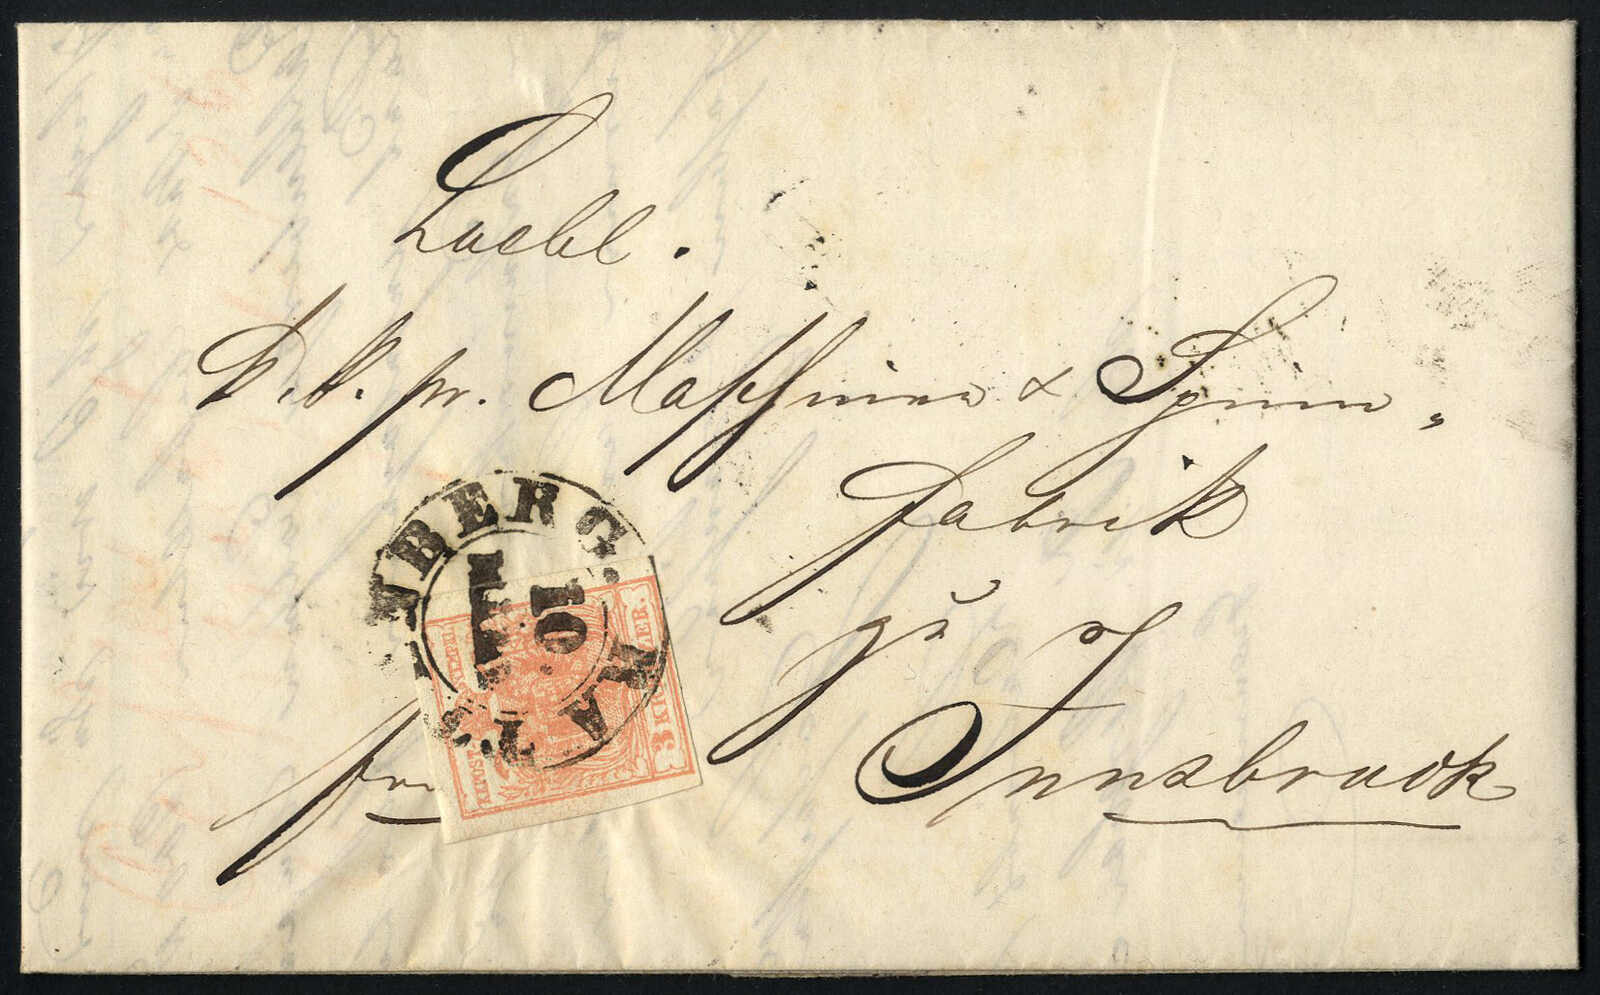 Loebl.
K. K. pr. Maschinen & Spinn„
fabrik
zu
Innsbruck
fr
BERG.
10.
RAT
KKPOST-STEMPEL
3 KREUZER.